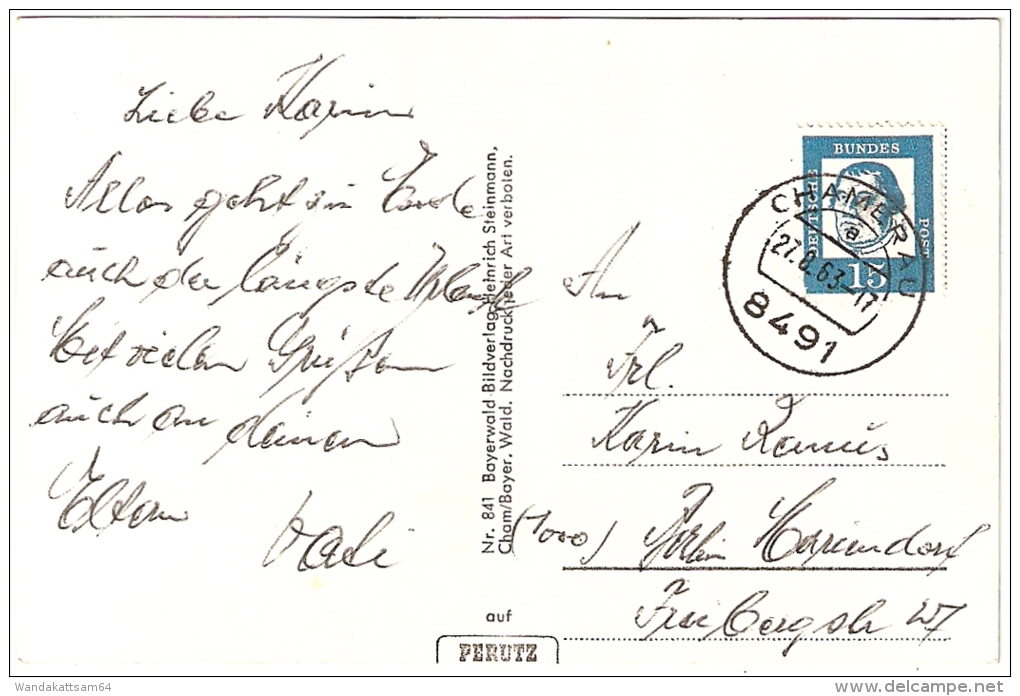 Liebe Karin
Alles geht zu Ende
auch der längste Urlaub
Mit vielen Grüßen
auch an deinen
Eltern
Nr. 841 Bayerwald Bildverlag Heinrich Steinmann,
Cham/Bayer. Wald. Nachdruck jeder Art verboten.
auf
PERUTZ
DEUTSCHE BUNDES POST
15
CHAMERAU
a
27.8.63-17
8491
An
Frl.
Karin Ramüs
(1000) Berlin Mariendorf
WandaKattsam64
© www.delcampe.net